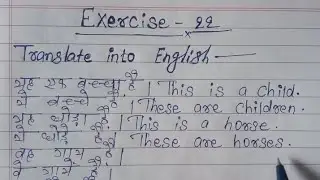 Exercise - 22
Translate into English —
यह एक बच्चा है । This is a child.
ये बच्चे हैं । These are children.
यह घोड़ा है । This is a horse.
ये घोड़े हैं । These are horses.
वह गाय है ।
वे गाय हैं ।